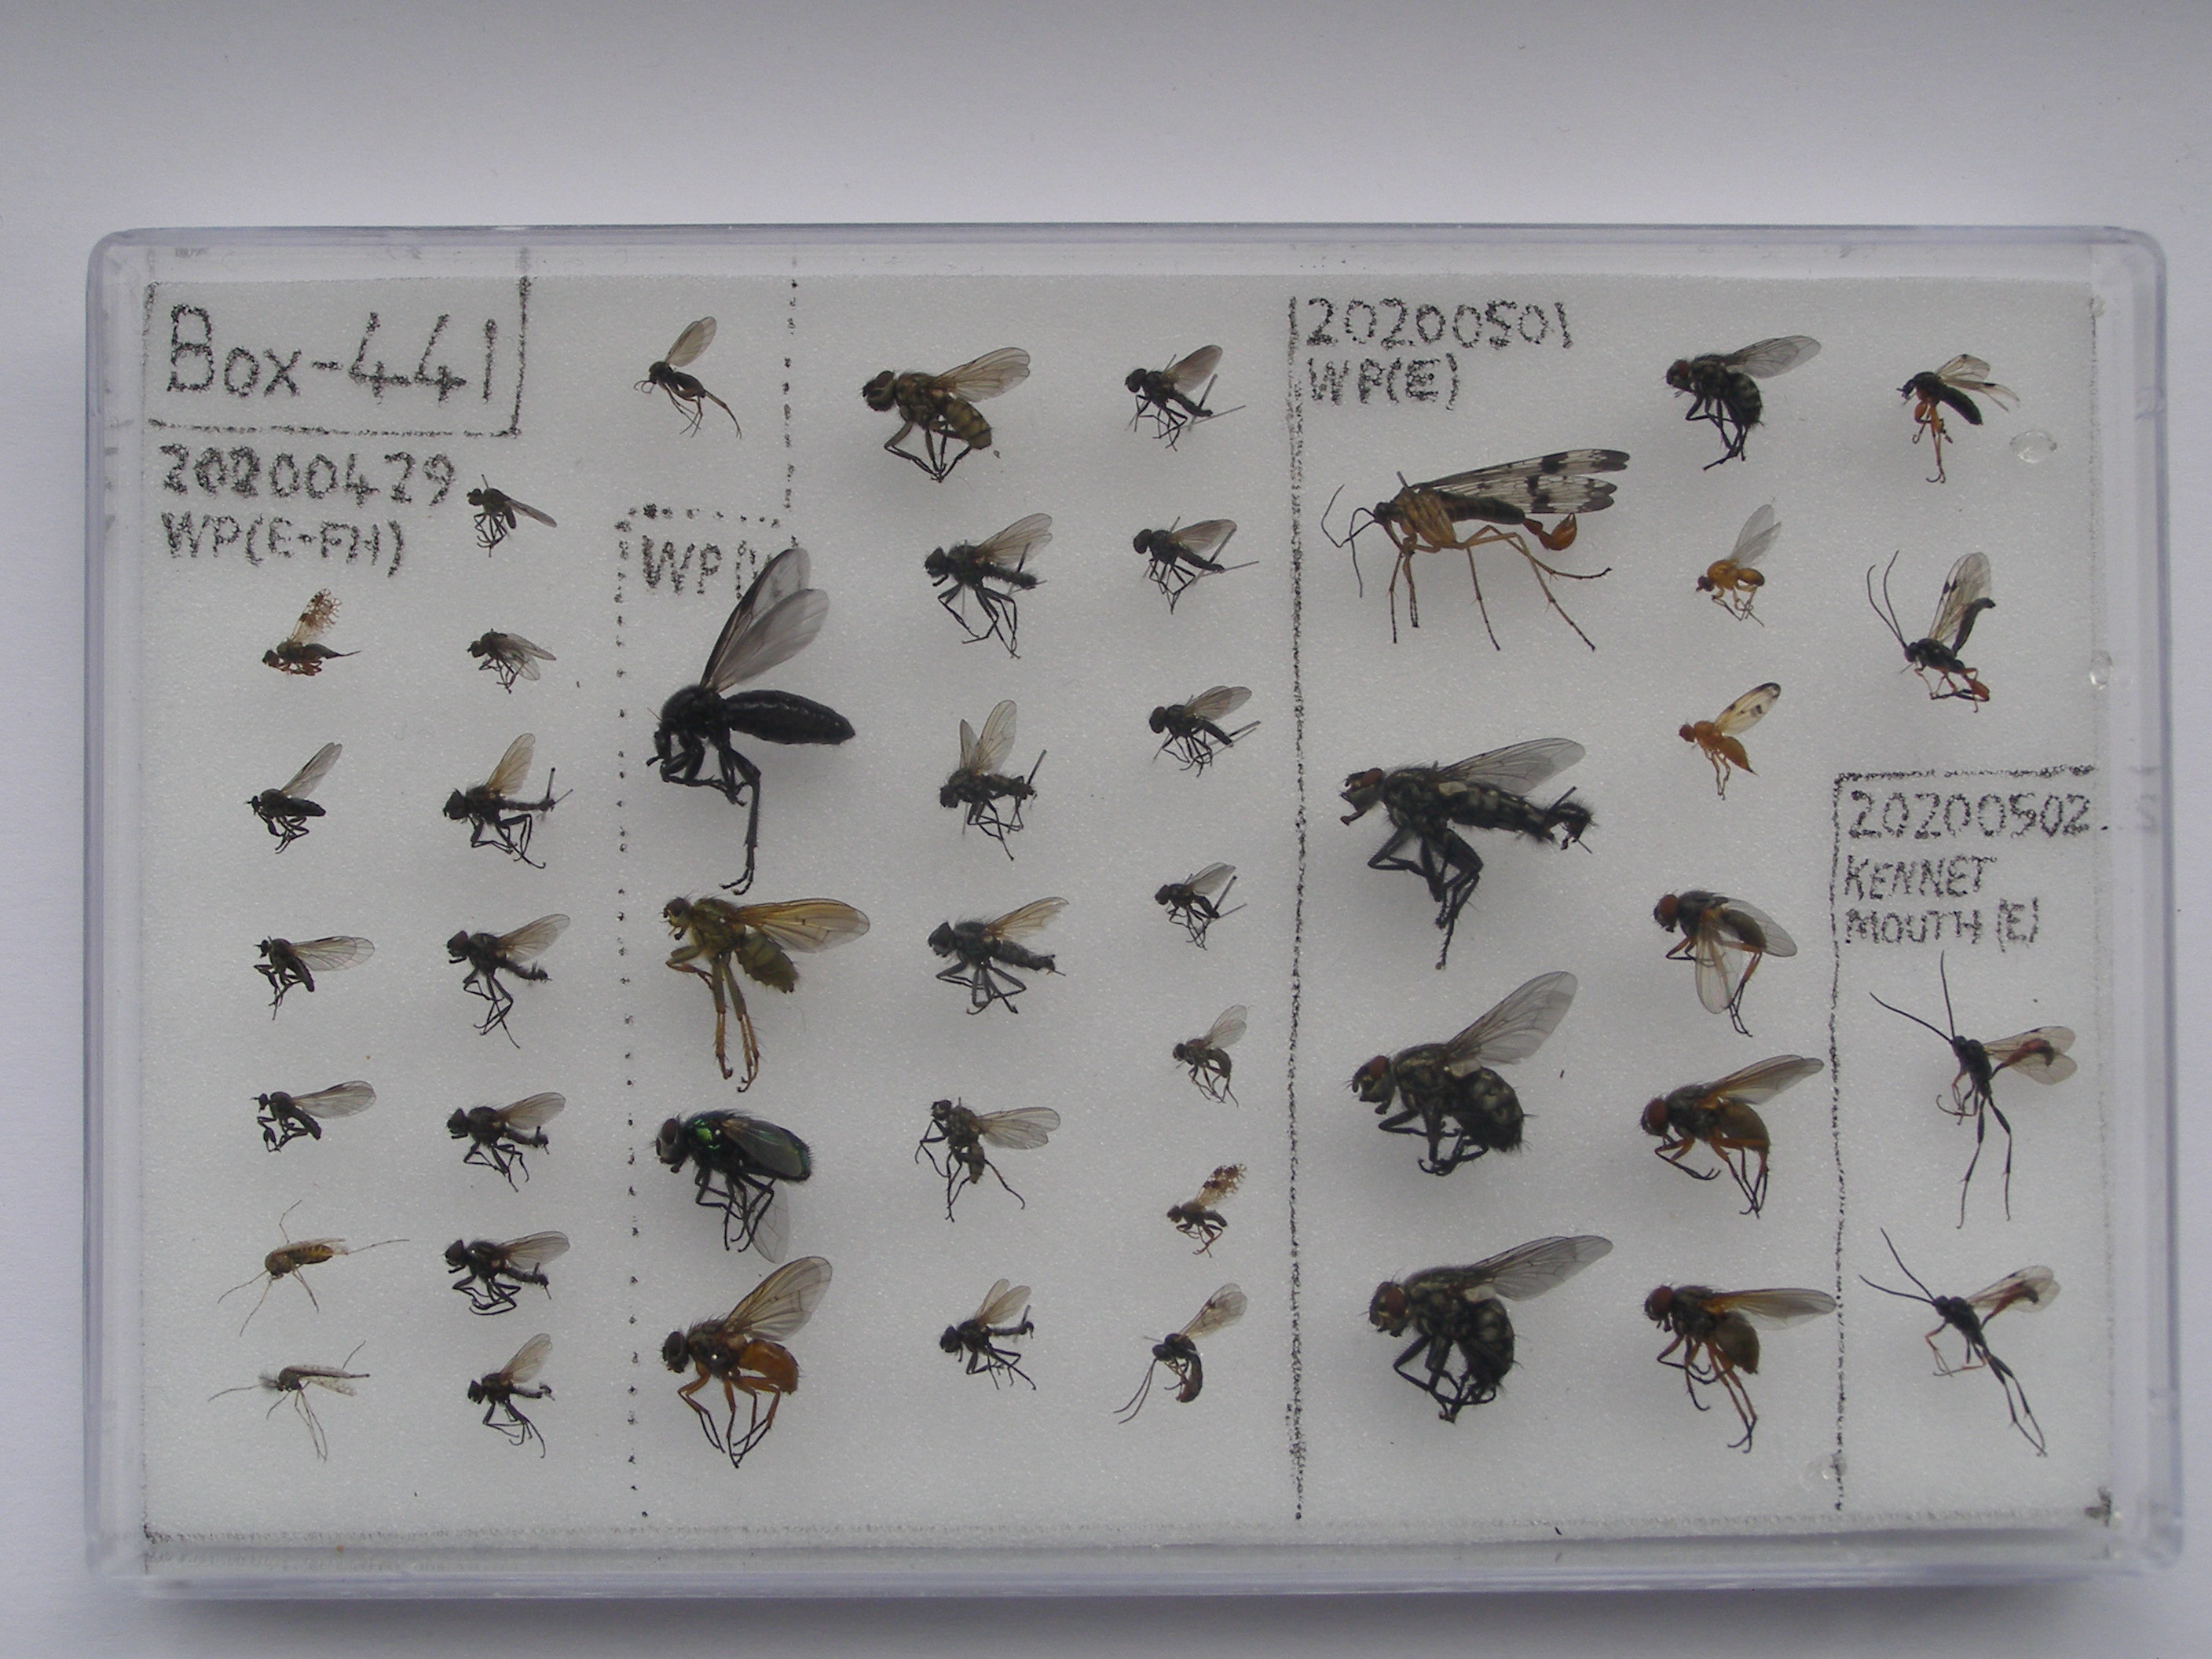 Box-441
20200429
WP(E-FH)
WP(
20200501
WP(E)
20200502
KENNET
MOUTH (E)